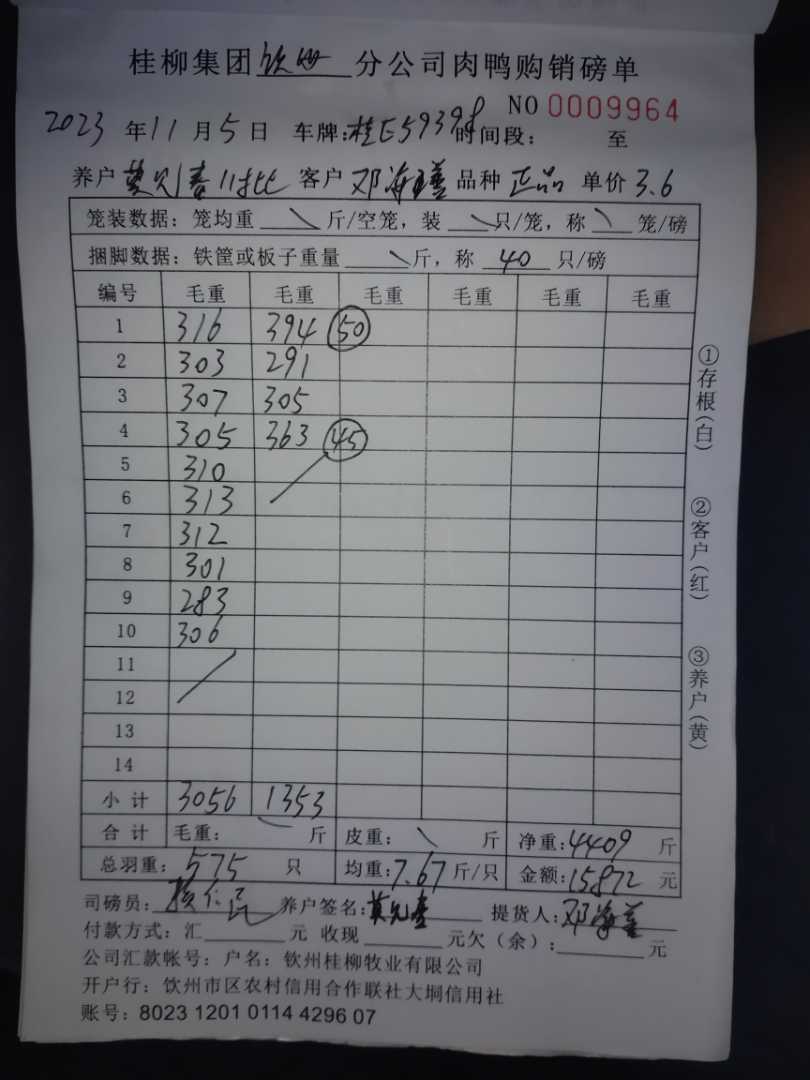 桂柳集团钦州分公司肉鸭购销磅单
NO 0009964
2023年11月5日 车牌:桂E59398 时间段: 至
养户 莫见春 11批 客户 邓海 品种 正品 单价 3.6
笼装数据:笼均重 \ 斤/空笼,装 \ 只/笼,称 \ 笼/磅
捆脚数据:铁筐或板子重量 \ 斤,称 40 只/磅
编号 毛重 毛重 毛重 毛重 毛重 毛重
1 316 394 50
2 303 291
3 307 305
4 305 363 45
5 310
6 313
7 312
8 301
9 283
10 306
11
12
13
14
小计 3056 1353
合计 毛重: \ 斤 皮重: \ 斤 净重:4409 斤
总羽重:575 只 均重:7.67 斤/只 金额:15872 元
司磅员: 养户签名:莫见春 提货人:邓海
付款方式:汇 元 收现 元欠(余): 元
公司汇款帐号:户名:钦州桂柳牧业有限公司
开户行:钦州市区农村信用合作联社大垌信用社
账号:8023 1201 0114 4296 07
①存根(白)
②客户(红)
③养户(黄)